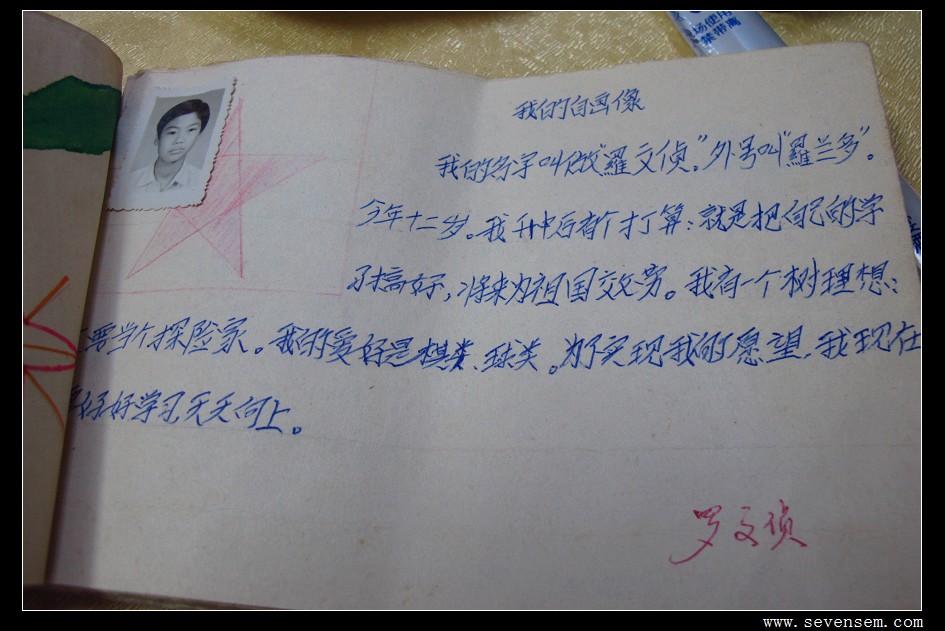 场使用
禁带离
我的自画像
我的名字叫做“羅文侦”。外号叫“羅兰多”。
今年十二岁。我升中后有个打算:就是把自己的学
习搞好,将来为祖国交。我有一个树理想:
要当个探险家。我的爱好是棋类、球类。为了实现我的愿望,我现在
好好学习天天向上。
罗文侦
www.sevensem.com